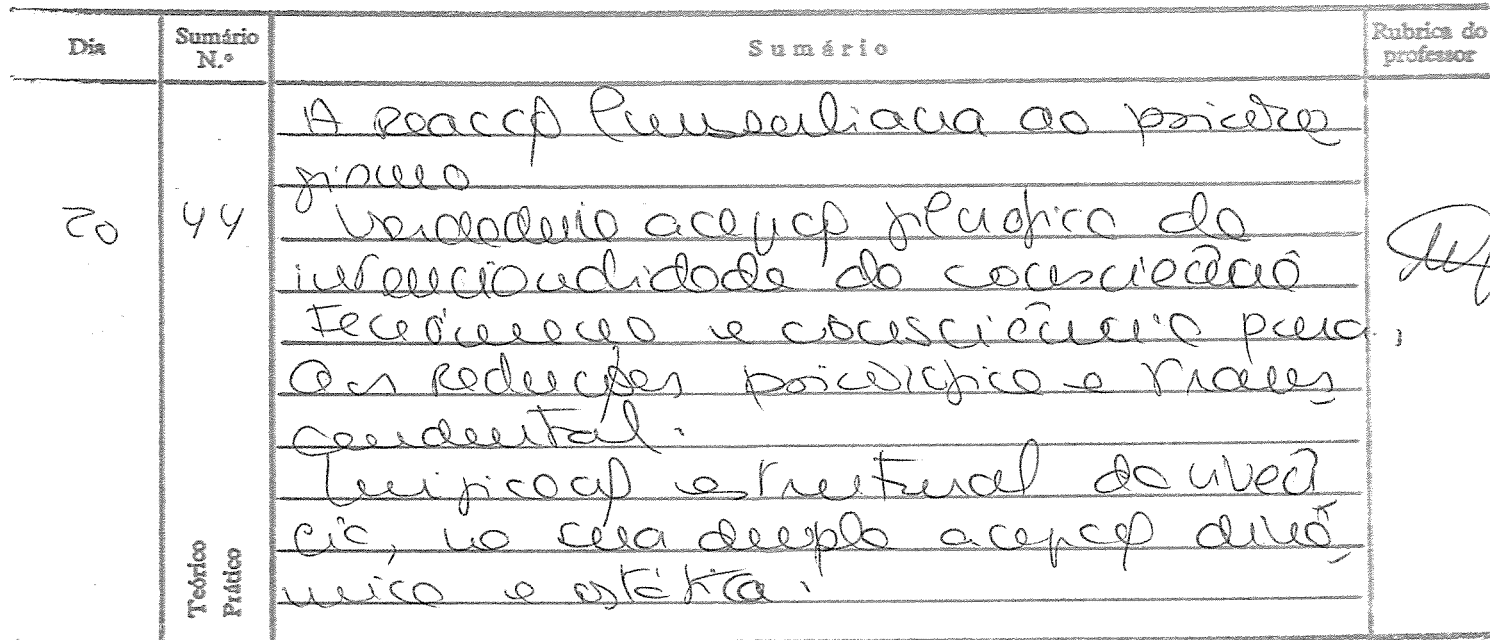 Dia
Sumário N.º
Sumário
Rubrica do professor
A reacção husserliana ao psicolo
gismo
20 44 Verdadeira acepção filosófica da
intencionalidade da consciência
Fenómeno e consciência pura.
As reducções psicológica e trans
cendental.
estrutural da vivên
cia, na sua dupla acepção dinâ
mica e estática.
Teórico
Prático